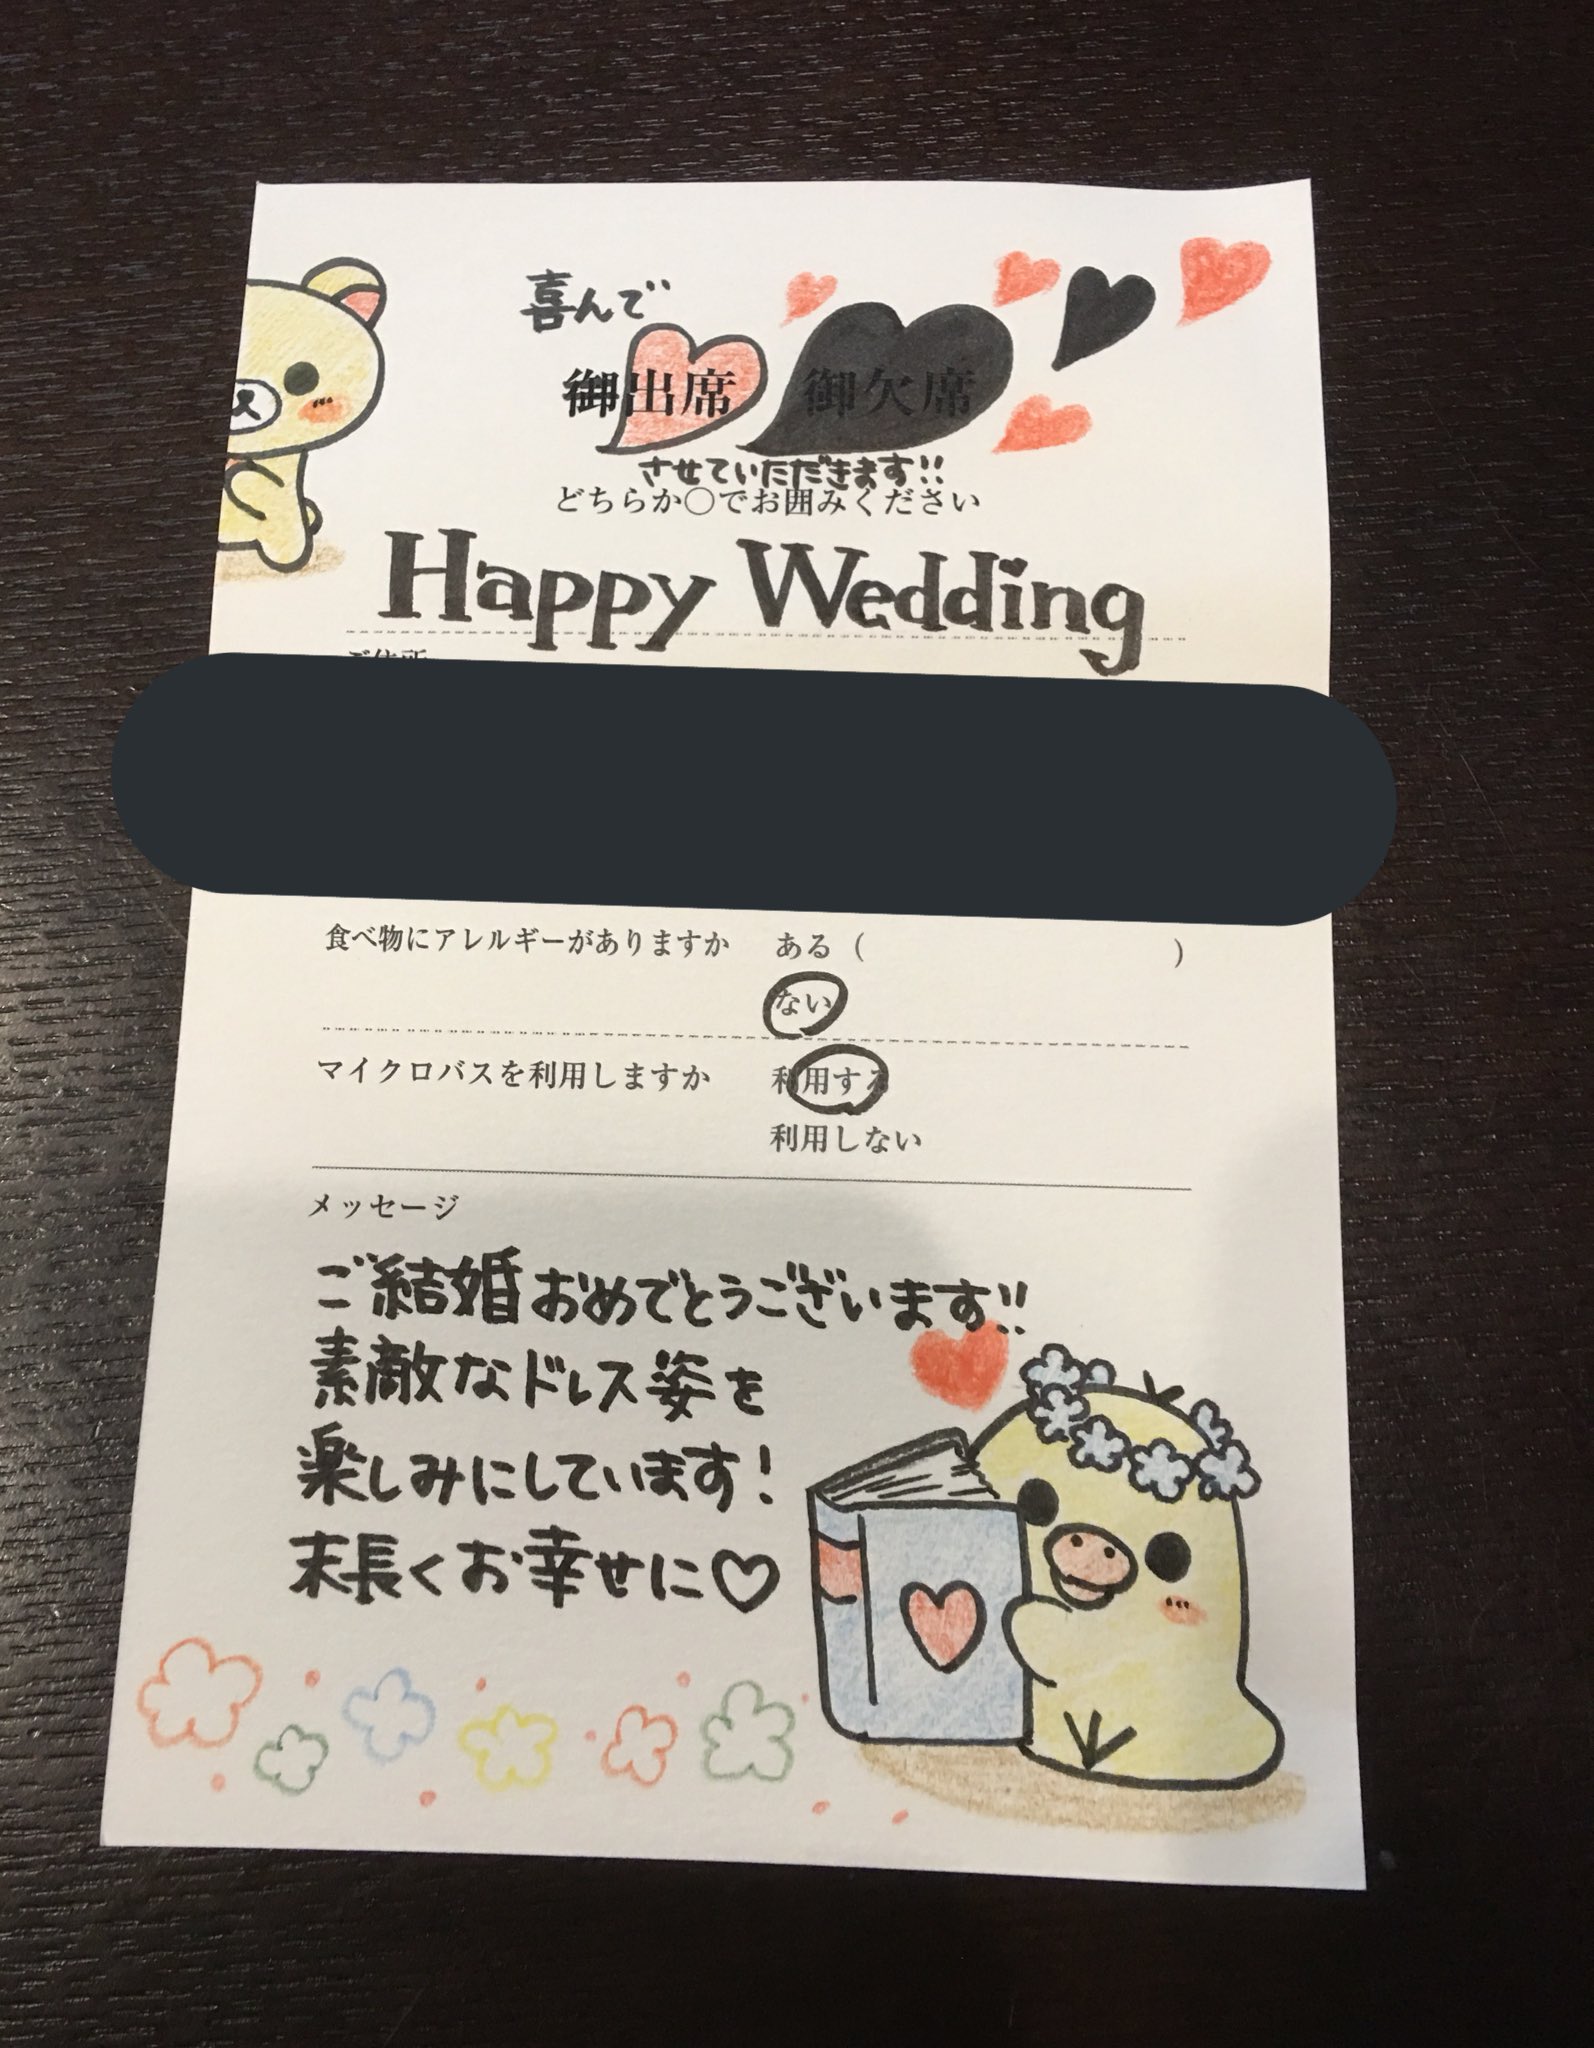 喜んで
御出席 御欠席
させていただきます!!
どちらか〇でお囲みください
Happy Wedding
ご住所
食べ物にアレルギーがありますか ある ( )
ない
マイクロバスを利用しますか 利用する
利用しない
メッセージ
ご結婚おめでとうございます!!
素敵なドレス姿を
楽しみにしています!
末長くお幸せに♡